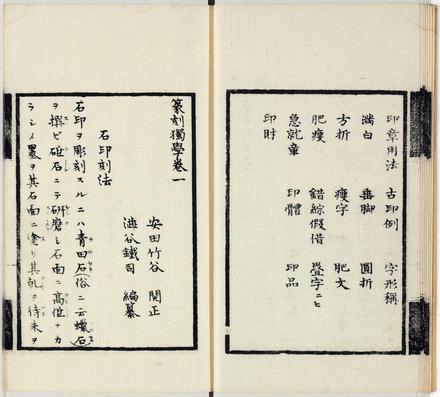 印章用法 古印例 字形稱
滿白 垂脚 圓折
方折 瘦字 肥文
肥瘦 錯綜假借 疊字ニヒ
急就章 印體 印品
印財
篆刻獨學卷一
安田竹谷 閱正
澁谷鐵司 編纂
石印刻法
石印ヲ彫刻スルニハ青田石(俗ニ云蠟石)
ヲ撰ビ砥石ニテ研磨シ石面ニ高低ナカ
ラシメ墨ヲ其石面ニ塗リ其乾ヲ待朱ヲ